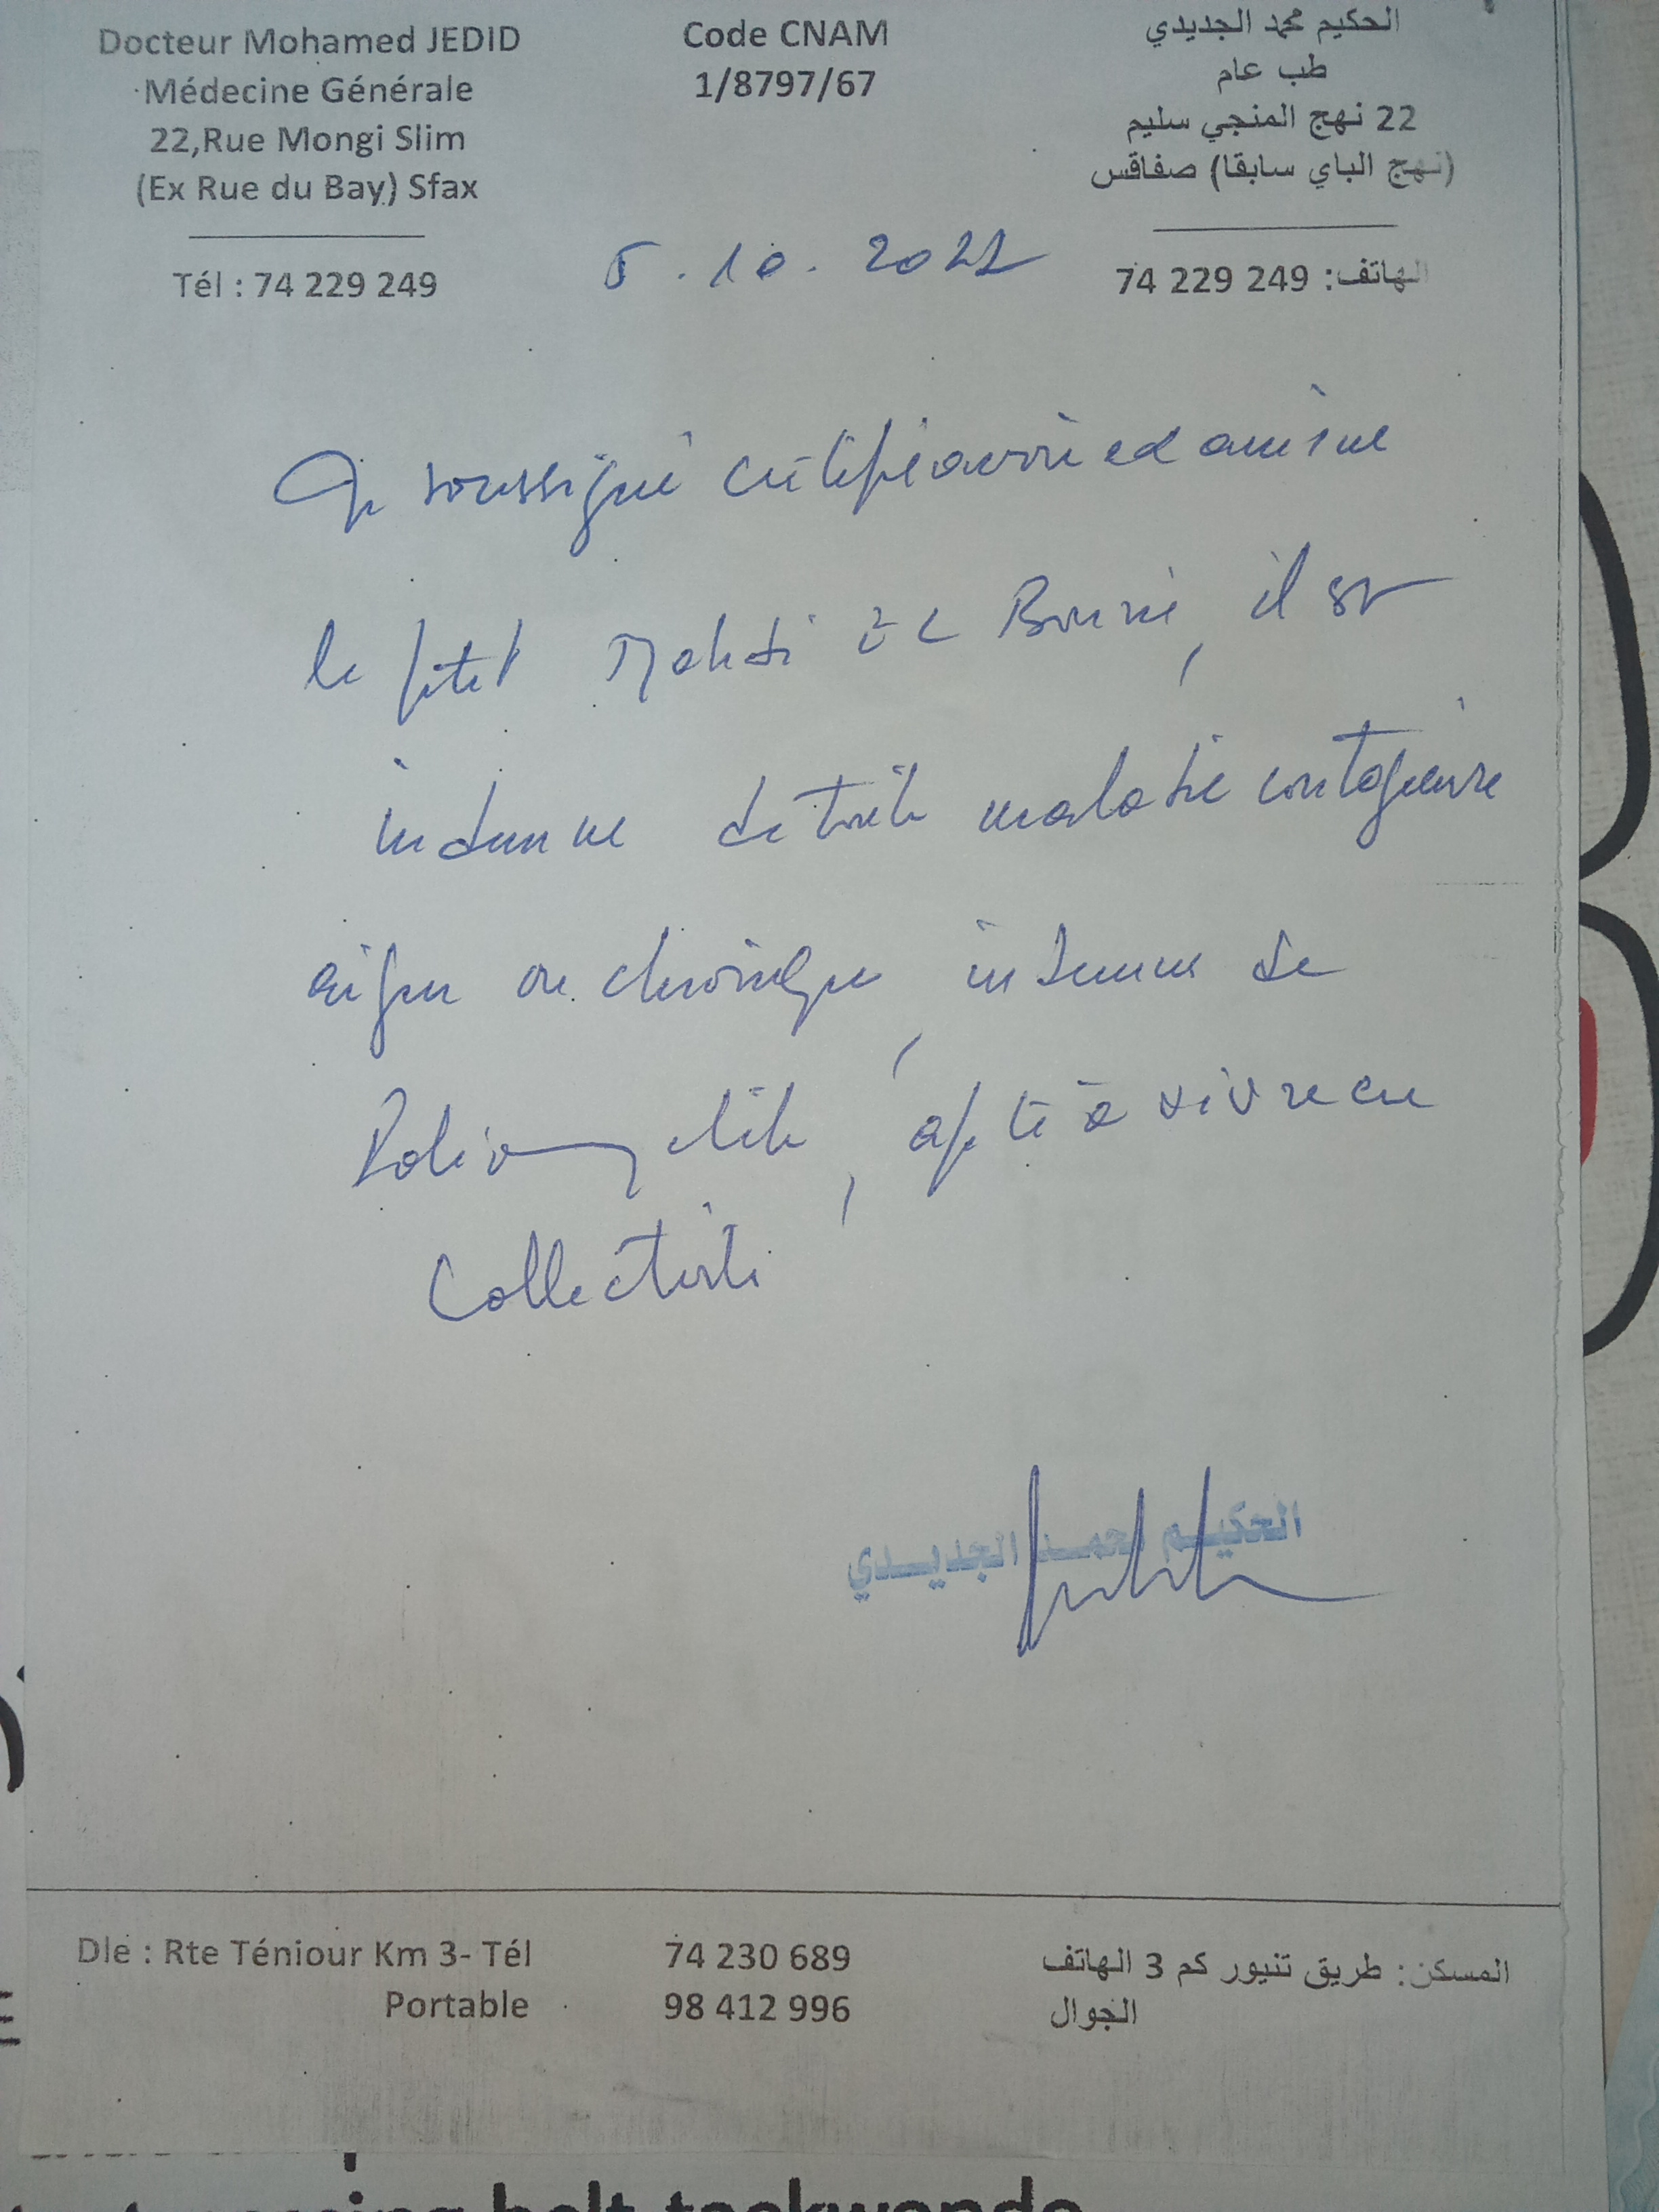 Docteur Mohamed JEDID
Médecine Générale
22,Rue Mongi Slim
(Ex Rue du Bay) Sfax
Tél : 74 229 249
Code CNAM
1/8797/67
الحكيم محمد الجديدي
طب عام
22 نهج المنجي سليم
(نهج الباي سابقا) صفاقس
الهاتف: 74 229 249
10. 2022
Je soussigné certifie avoir examiné
le petit Mahdi il est
indemne de toute maladie contagieuse
aigue ou chronique, indemne de
Poliomyélite, apte à vivre en
Collectivité
الحكيم محمد الجديدي
Dle : Rte Téniour Km 3- Tél 74 230 689
Portable 98 412 996
المسكن: طريق تنيور كم 3 الهاتف
الجوال
belt taekwondo